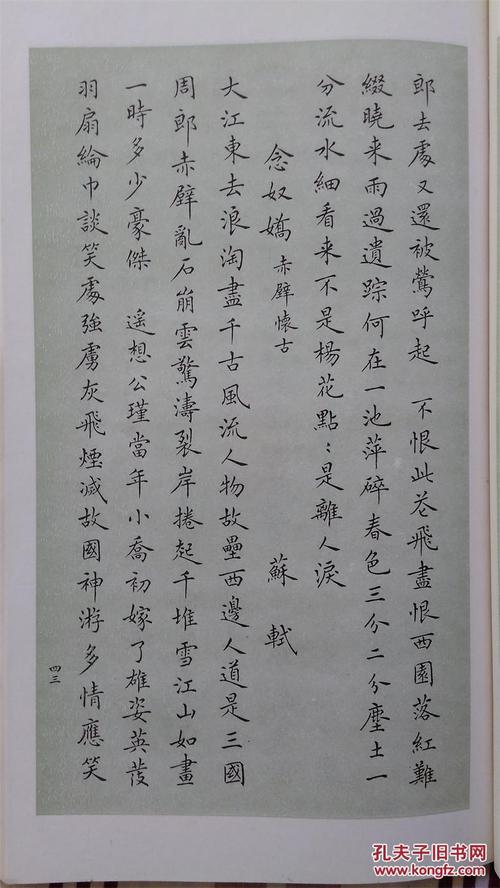 郎去處又還被鶯呼起　不恨此花飛盡恨西園落紅難
綴曉来雨過遺踪何在一池萍碎春色三分二分塵土一
分流水細看来不是楊花點〻是離人淚
念奴嬌 赤壁懷古　蘇軾
大江東去浪淘盡千古風流人物故壘西邊人道是三國
周郎赤壁亂石崩雲驚濤裂岸捲起千堆雪江山如畫
一時多少豪傑　遥想公瑾當年小喬初嫁了雄姿英發
羽扇綸巾談笑處強虜灰飛煙滅故國神游多情應笑
四三
孔夫子旧书网
www.kongfz.com